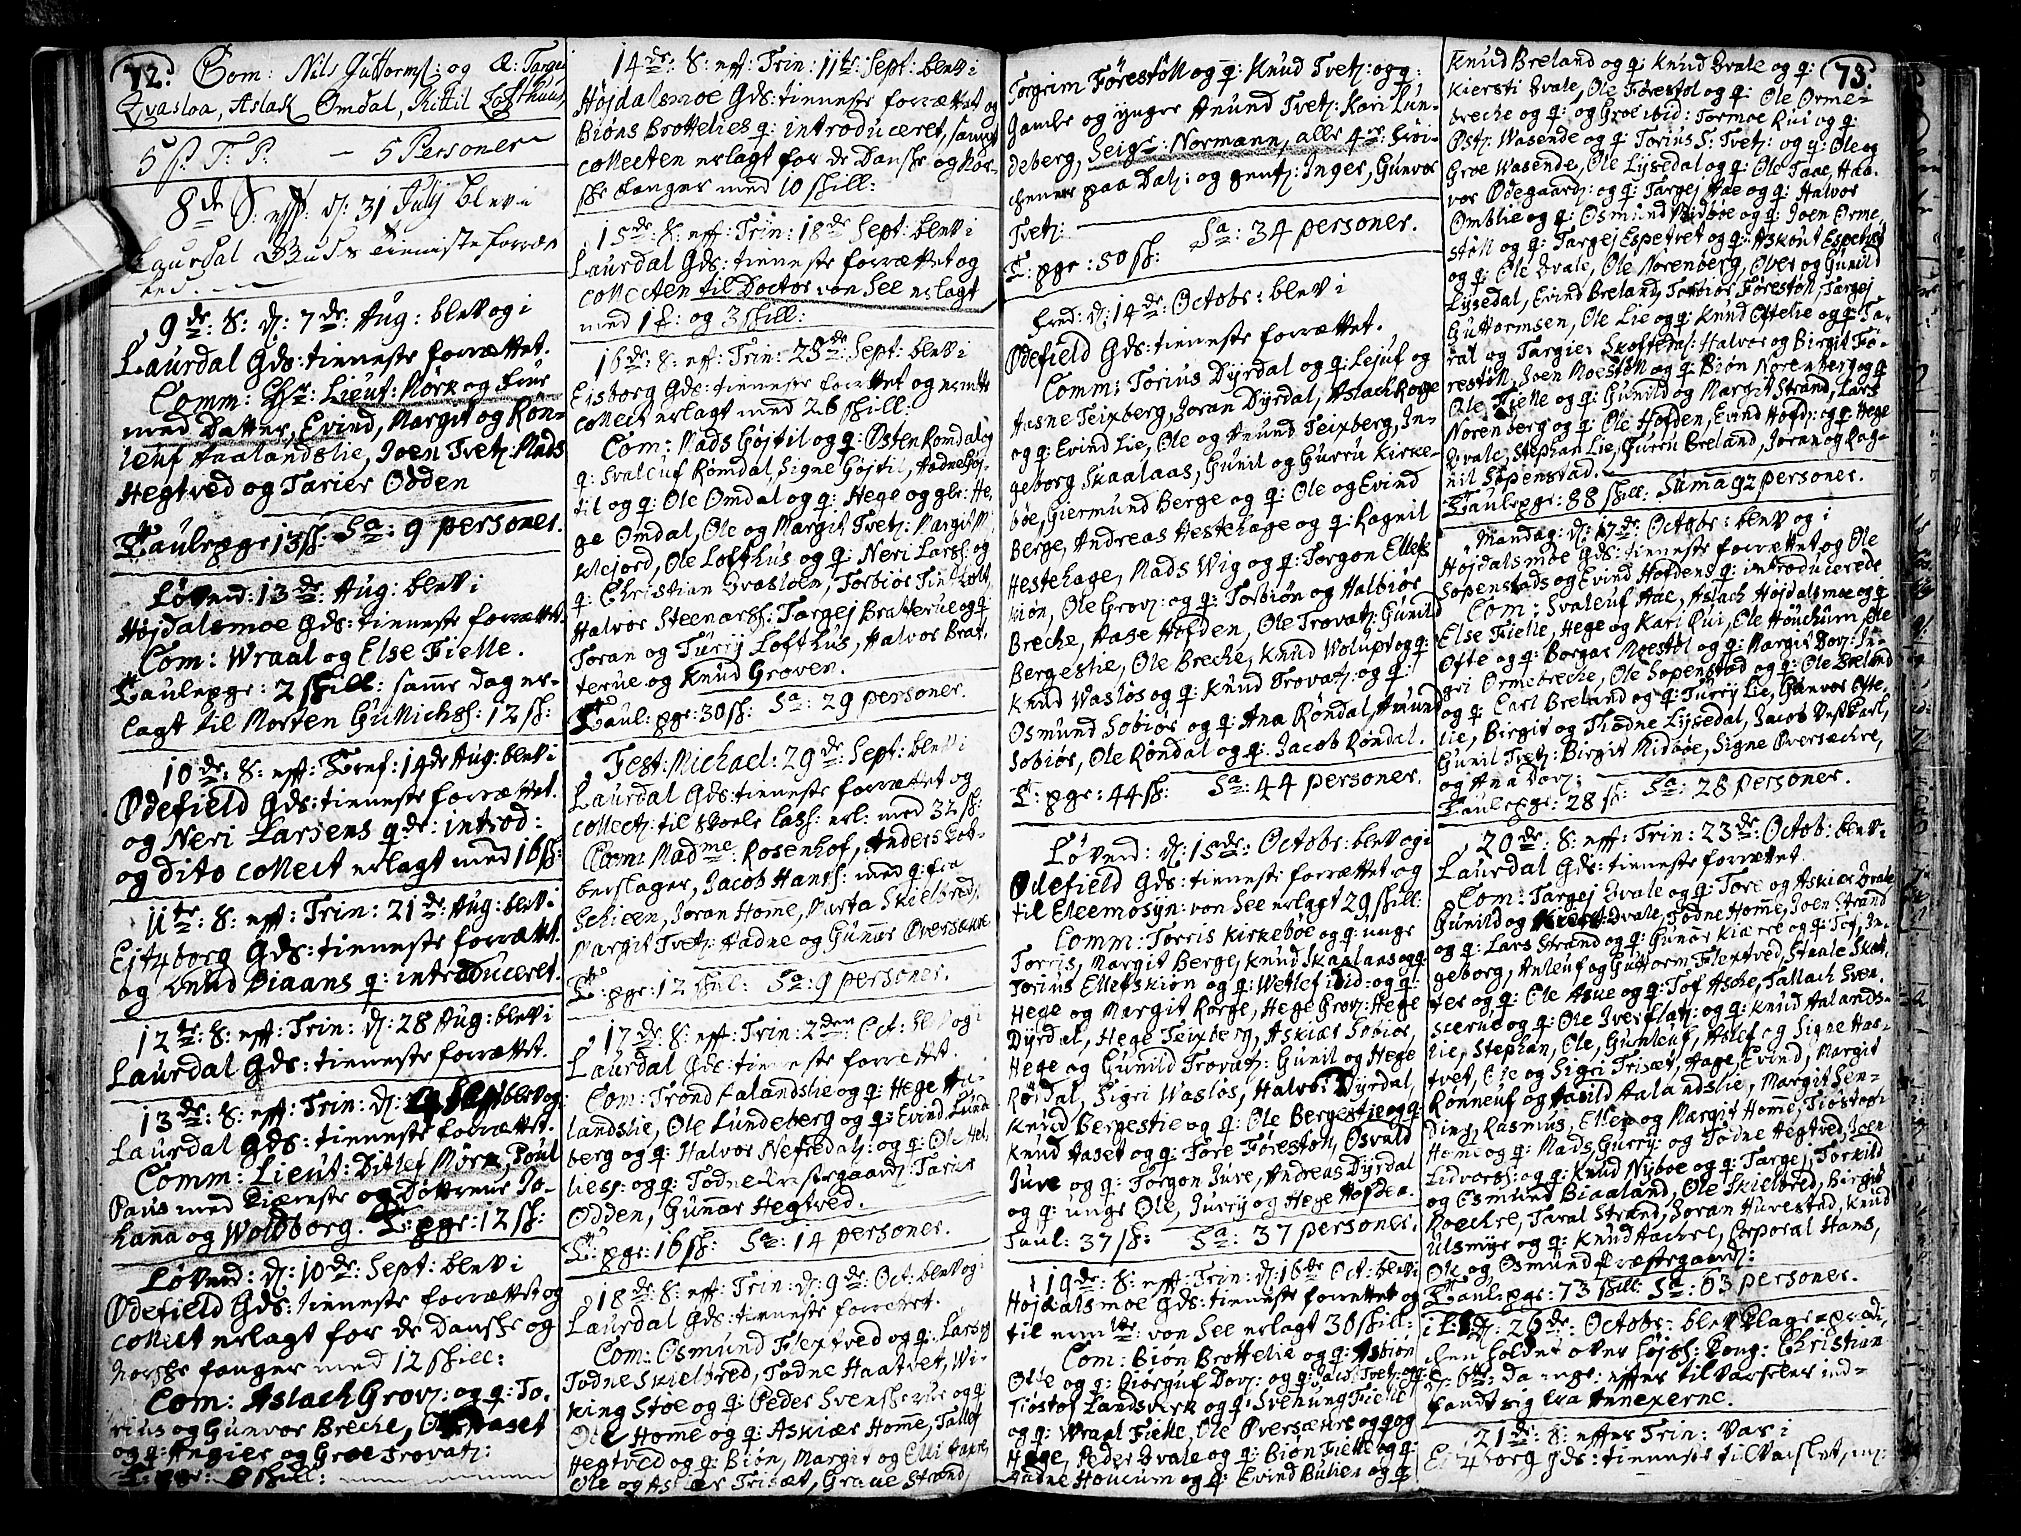 72.
Com: Nils Guttormss: og
Qvasloa, Aslak Omdal, Kittil Lofthuus,
5 ß. T. P. – 5 Personer
8de S: eff: d: 31 July blev i
Laurdal Guds Tieneste forret-
ted.
9de: S: d: 7de: Aug: blev og i
Laurdal Gds: tieneste forrættet.
Comm: Lieut: Mörk og Frue
med Datter, Evind, Margit og Rön-
leuf Aaalandslie, Joen Tvetz: Mads
Hegtved og Tarier Odden
Taulepge 13 ß. Sa: 9 personer.
Løverd: 13de: Aug: blev i
Højdalsmoe Gds: tieneste forrættet.
Com: Wraal og Else Fielle.
Taulepge: 2 skill: samme dag er-
lagt til Morten Gullichss: 12 ß:
10de: S: eff: Tref: 14de Aug: blev i
Ødefield Gds: tieneste forrættet.
og Neri Larsens q:de: introd:
og dito collect erlagt med 16 ß:
11te: S: eff: Trin: 21de: Aug: blev i
Ejtzborg Gds: tieneste forrættet.
og Knud Biaans q: introduceret.
12te: S: eff: Trin: d: 28 Aug: blev i
Laurdal Gds: tieneste forrættet.
13de: S: eff: Trin: d: 4 Sept: blev og
Laurdal Gds: tieneste forrættet.
Comm: Lieut: Ditlef Mörk, Poul
Paus med Kiæreste og Døttrene Jo-
hanna og Woldborg. T: pge: 12 ß:
Løverd: d: 10de: Sept: blev i
Ødefield Gds: tieneste forrættet og
collect erlagt for de Danske og
Norske fanger med 12 skill:
Com: Aslach Grovz: og q: To-
rius og Gunvor Breche,
og q: Angier og Groe Trovatz:
T: pge: 8 skill:
14de: S: eff: Trin: 11te: Sept: blev i
Højdalsmoe Gds: tieneste forrættet og
Biøns Brottelies q: introduceret, samt
collecten erlagt for de Danske og Nor-
ske fanger med 10 skill:
15de: S: eff: Trin: 18de Sept: blev i
Laurdal Gds: tieneste forrættet og
collecten til Doctor von See erlagt
med 1 ß: og 3 skill:
16de: S: eff: Trin: 25de: Sept: blev i
Eisborg Gds: tieneste forrettet og nemte
collect erlagt med 26 skill:
Com: Mads Gøjtil og q: Østen Romdal og
q: Svaleuf Römdal, Signe Gøjtil, Aadne Gøj-
til og q: Ole Omdal og q: Hege og gl: He-
ge Omdal, Ole og Margit Tvetz: Margit
Kleford, Ole Lofthus og q: Neri Larss: og
q: Christian Qvasloen, Torbiør
Halvor Steenarss: Targej Bratterue og q:
Joran og Turry Lofthus, Halvor Brat-
terue og Knud Groven.
Taul: pge: 30 ß: Sa: 29 personer.
Fest: Michael: 29de Sept: blev i
Laurdal Gds: tieneste forrættet og
collectz: til skole cass: erl: med 32 ß:
Com: Madme: Rosenhof, Anders Kob-
berslager, Jacob Hanss: med q: fra
Schieen, Joran Homme, Marta Skielbred,
Margit Tvetz: Aadne og Gunnar Øversækre
T: pge: 12 skil: Sa: 9 personer.
17de: S: eff: Trin: 2den: Oct: blev og i
Laurdal Gds: tieneste forrettet.
Com: Trond Aalandslie og q: Hege Aa-
landslie, Ole Lundeberg og q: Evind Lunde-
berg og q: Halvor Nefredalz: og q: Ole Hel-
liess: og q: Todne Præstegaardz: Tarier
Odden, Gunnar Hegtved.
T: pge: 16 ß: Sa: 14 personer.
18de: S: eff: Trin: d: 9de: Oct: blev og i
Laurdal Gds: tieneste forrettet.
Com: Osmund Flextved og q: Lars og
Todne Skielbred, Todne Haatvet, Wi-
king Støe og q: Peder Svenskerue og q:
Ole Homme og q: Askiær Homme, Tallef
Hegtved og q: Biøn, Margit og
Ole og Askier Trisæt, Graue Strand,
Torgrim Förestöll og q: Knud Tvetz: og q:
Gamle og yngre Anund Tvetz: Kari Lun-
deberg, Seigr: Normann, alle 4re: Frö-
chener paa Dalz: og genfz: Inger, Gunvor
Tvetz:
T: pge: 50 ß: Sa: 34 personer.
Fred: d: 14de: Octobr: blev i
Ødefield Gds: tieneste forrættet.
Comm: Torius Dyrdal og q: Lejuf og
Aasne Teixberg, Joran Dyrdal, Aslach Roge
og q: Evind Lie, Ole og Anund Teixberg, In-
geborg Skaalaas, Gunil og Gurru Kirke-
bøe, Giermund Berge og q: Ole og Evind
Berge, Andreas Hestehage og q: Ragnil
Hestehage, Mads Wig og q: Torgon Ellefs
kiøn, Ole Grovz: og q: Torbiøn og Halbiør
Breche, Aage Hofden, Ole Trovatz: Gunild
Bergeslie, Ole Breche, Knud Wolupt og q:
Knud Wasløs og q: Knud Trovatz: og q:
Osmund Sobiør og q: Ana Röndal, Amund
Sobiør, Ole Röndal og q: Jacob Röndal.
T: pge: 44 ß: Sa: 44 personer.
Løverd: d: 15de: Octobr: blev og i
Ødefield Gds: tieneste forrættet og
til Eleemosyn: von See erlagt 29 skill:
Comm: Torris Kirkebøe og q: unge
Torris, Margit Berge, Knud Skaalaas og q:
Torius Ellefskiøn og q: Wetlef ibid: og q:
Hege og Margit Rorge, Hege Grovz: Hege
Dyrdal, Hege Teixberg, Askiær Sobiør,
Hege og Gunild Trovatz: Gunil og Hege
Röndal, Sigri Wasløs, Halvor Dyrdal,
Knud Bergestie og q: Ole Bergestie og q:
Knud Aaset og q: Tore Förestöll, Osvald
Juve og q: Torgon Juve, Andreas Dyrdal
og q: unge Ole, Jurry og Hege Hofden.
Taul: 37 ß: Sa: 37 personer.
19de: S: eff: Trin: d: 16de Oct: blev i
Højdalsmoe Gds: tieneste forrættet og
til nemte: von See erlagt 30 skill:
Com: Biøn Brottelie og q: Asbiøn
Ofte og q: Giørguf Dovz: og q: Jacob Tvetz:
Tiøstof Landsverk og q: Svenung Fielle
og q: Wraal Fielle, Ole Øversækre og q: og
Hege, Peder Qvale og q: Biøn Fielle og q:
Aadne Houcum og q: Evind Bulien og q:
73.
Knud Breland og q: Knud Qvale og q:
Kiersti Qvale, Ole Förestöl og q: Ole Orme-
breche og q: og Groe ibid: Tormoe Rui og q:
Østz: Wasende og q: Torius S: Tvetz: og q: Ole og
Groe Wasende, Ole Lysedal og q: Ole Taae, Hal-
vor Ødegaardz: og q: Targej Aae og q: Halvor
Omblie og q: Osmund Midbøe og q: Joen Orme-
stöll og q: Targej Espetvet og q: Askout Espetvet
og q: Ole Qvale, Ole Norenberg, Olver og Gunild
Lysedal, Evind Breland, Torbiör Förestöll, Targej
Guttormsen, Ole Lie og q: Knud Oftelie og q: Ta-
ral og Targier Skoftedaz: Halvor og Birgit Fö-
restöll, Joen Moestöll og q: Biøn Norenberg og q:
Ole Fielle og q: Gunild og Margit Strand, Lars
Norenberg og q: Ole Hofden, Evind Hofdz: og q: Hege
Qvale, Stephan Lie, Gurru Breland, Joran og Rag-
nil Sopenstad.
Taulepge: 88 skill: Suma 92 personer.
Mandag: d: 17de: Octobr: blev og i
Højdalsmoe Gds: tieneste forrættet og Ole
Sopenstads og Evind Hofdens q: introducerede
Com: Svaleuf Aae, Aslach Højdalsmoe og q:
Else Fielle, Hege og Kari Rui, Ole Houchum, Ole
Ofte og q: Borgar Moestöl og q: Margit Dovz: In-
gri Ormebreche, Ole Sopenstad og q: Ole Breland
og q: Carl Breland og q: Turry Lie, Gunvor Ofte-
lie, Birgit og Thodne Lysedal, Jacob
Gunil Tvetz: Birgit Midbøe, Signe Øversækre,
og Ana Dovz:
Taulepge: 28 ß: Sa: 28 personer.
20de: S: eff: Trin: 23de: Octob: blev i
Laurdal Gds: tieneste forrættet.
Com: Targej Qvale og q: Tore og Askier Qvale
Gunild og Qvale, Todne Homme, Joen Strand
og q: Lars Strand og q: Gunar Kiærre og q: Tof, In-
geborg, Anleuf og Guttorm Flextved, Staale Skat-
ter og q: Ole Aske og q: Tof Aske, Tallach Sven-
scerue og q: Ole Iverflatz: og q: Knud Aalands-
lie, Stephan, Ole, Gunleuf, Rolf og Signe Haa-
tvet, Ole og Sigri Trisæt, Aage, Evind, Margit
Ronneuf og Aasild Aalandslie, Margit Sen-
ding, Rasmus, Ellef og Margit Homme, Tiøstof
Homme og q: Mads, Gurry og Todne Hegtved, Joen
Lidvorss: og q: Knud Nyboe og q: Targej, Torkild
og Osmund Biaaland, Ole Skielbred, Birgit
Roechre, Taral Strand, Joran Hurestad, Knud
Ulsmyr og q: Knud Aachre, Corporal Hans,
Ole og Osmund Præstegaardz:
Taul: pge: 73 skill: Sa: 63 personer.
d: 26de: Octobr: blev Klage-prædi-
chen holden over højsl: Kong: Christian
d: 6te: da inge: efter til varselen ind-
fandt sig fra Annexerne.
21de: S: efter Trin: var i
Eitzborg Gds: tieneste tilvarslet, m: